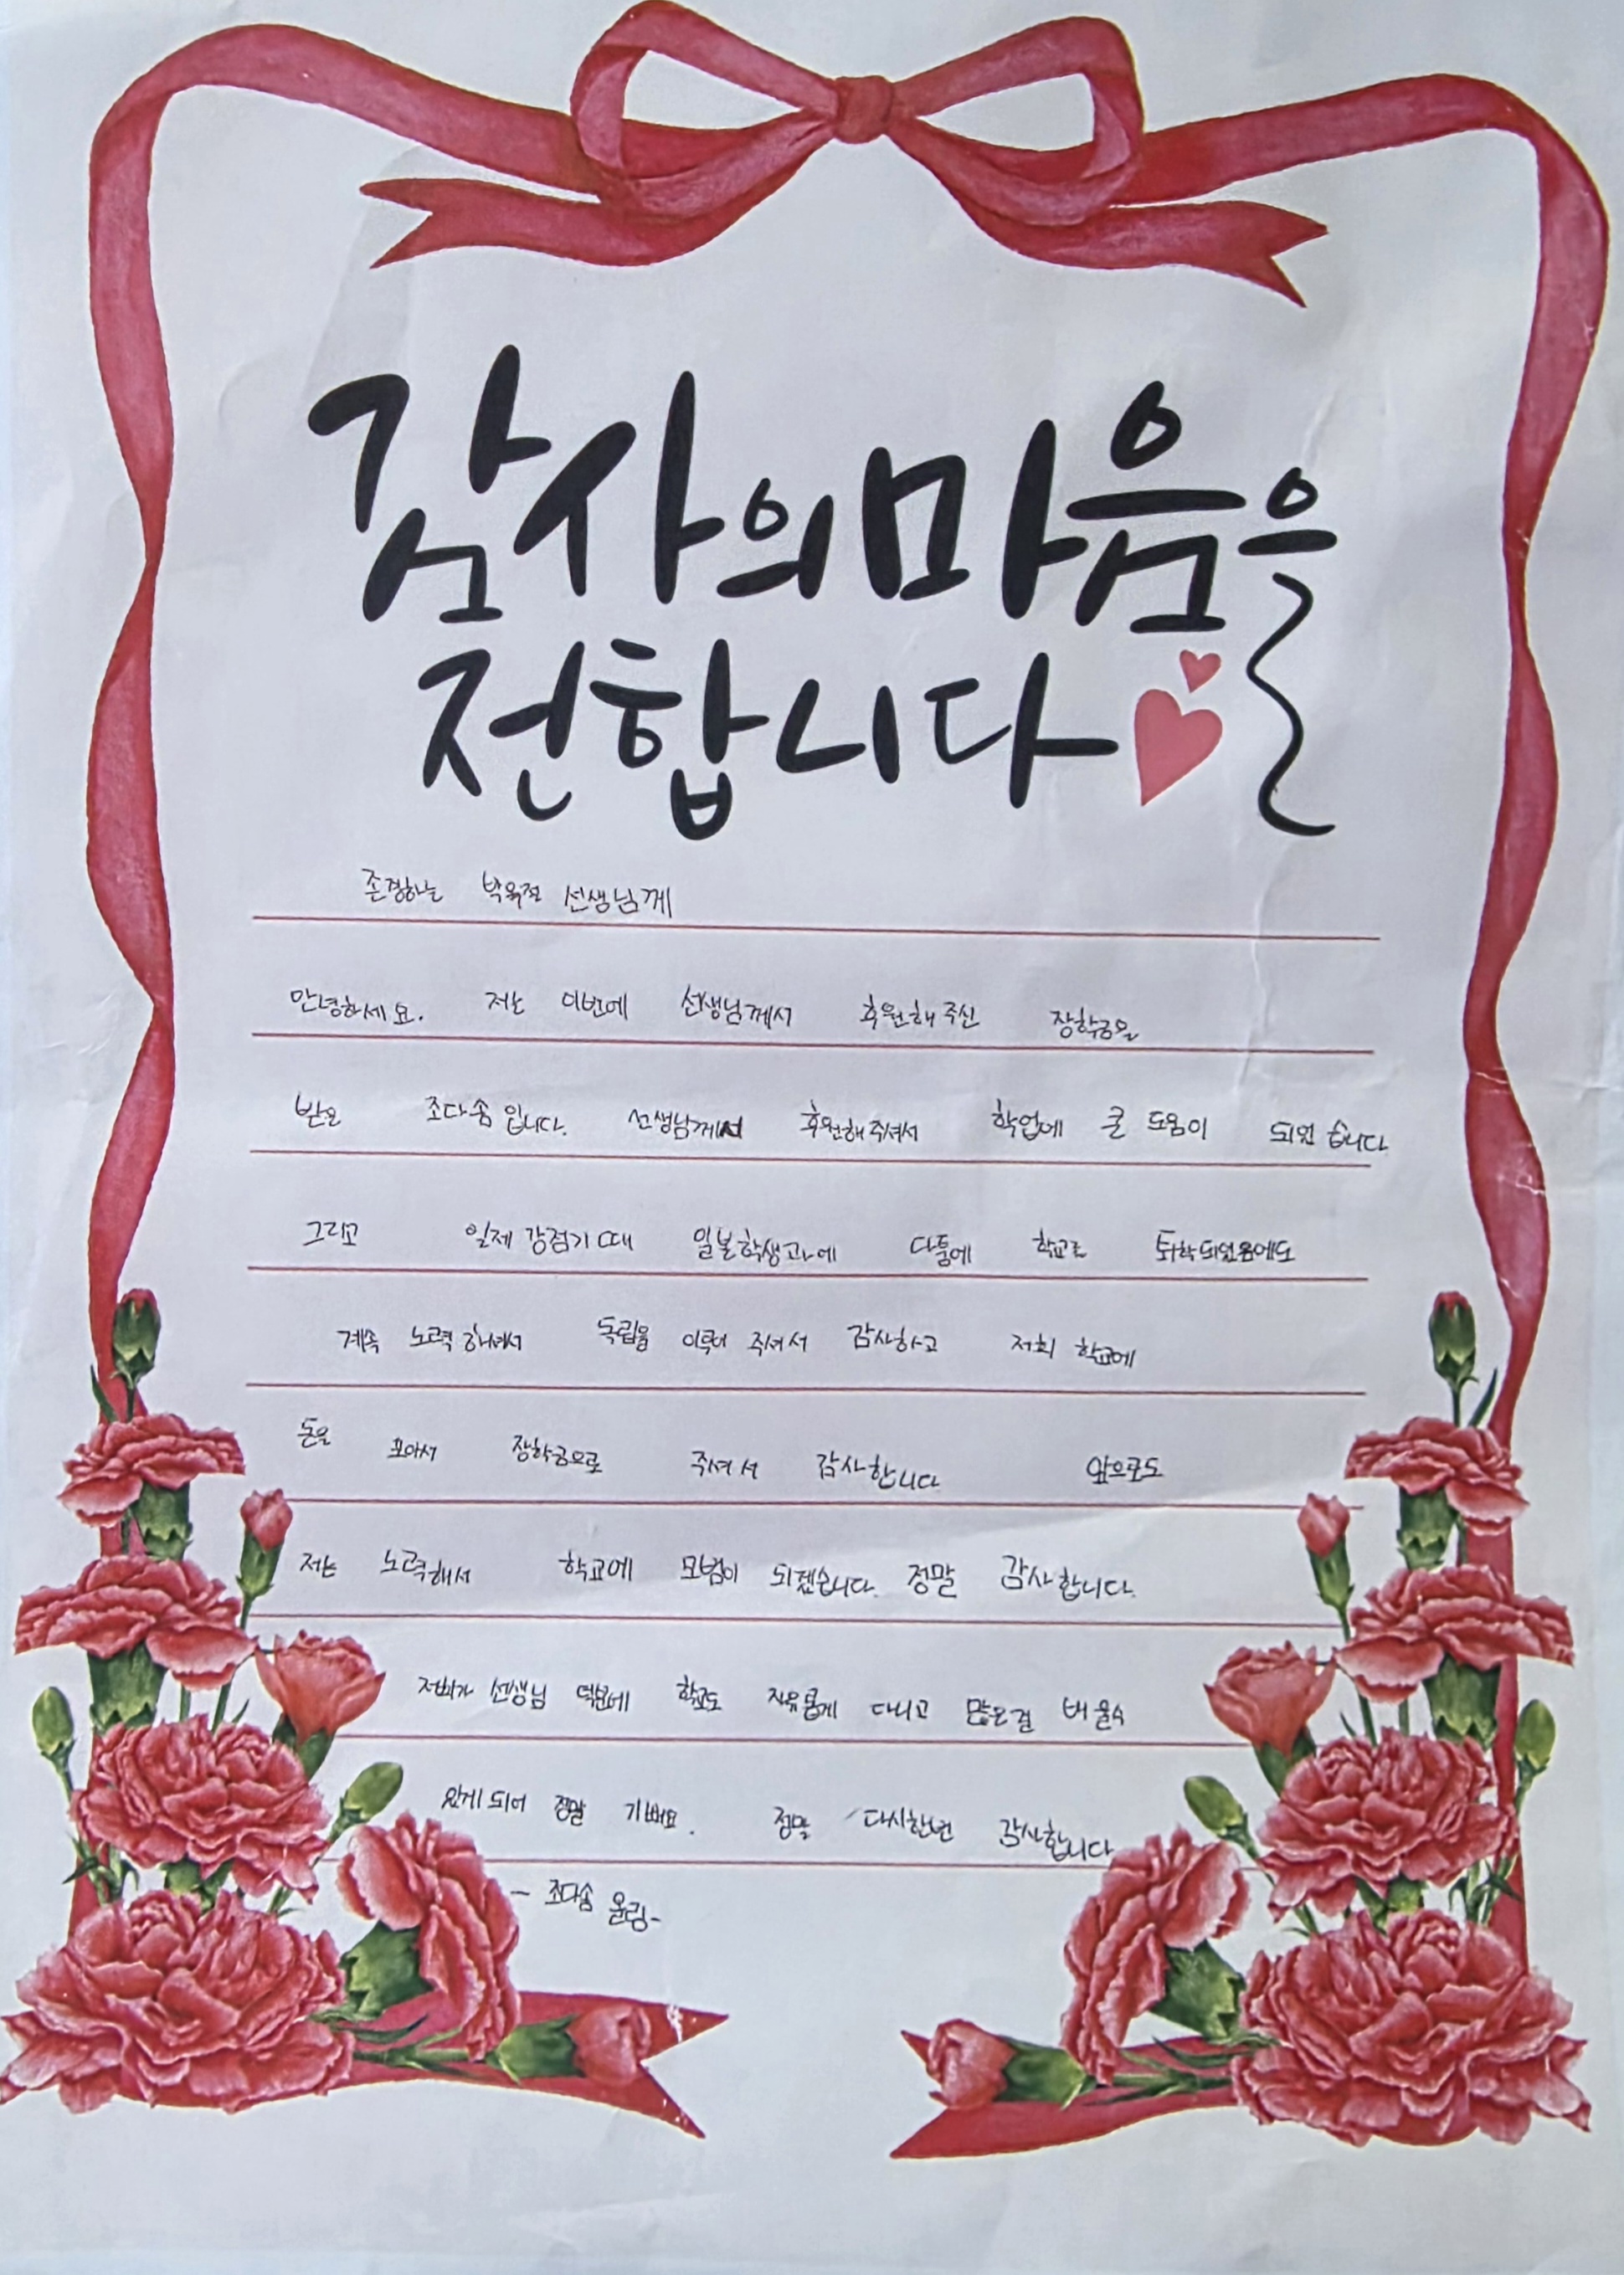 감사의 마음을
전합니다
존경하는 선생님께
안녕하세요. 저는 이번에 선생님께서 후원해 주신 장학금을
받은 조다솜 입니다. 선생님께서 후원해 주셔서 학업에 큰 도움이 되었 습니다
그리고 일제 강점기 때 일본학생과에 다툼에 학교로 퇴학되었음에도
계속 노력 하셔서 독립을 이루어 주셔서 감사하고 저희 학교에
돈을 모아서 장학금으로 주셔서 감사합니다 앞으로도
저는 노력해서 학교에 모범이 되겠습니다. 정말 감사합니다.
저희가 선생님 덕분에 학교도 자유롭게 다니고 많은걸 배울수
있게 되어 정말 기뻐요. 정말 다시한번 감사합니다
- 조다솜 올림-